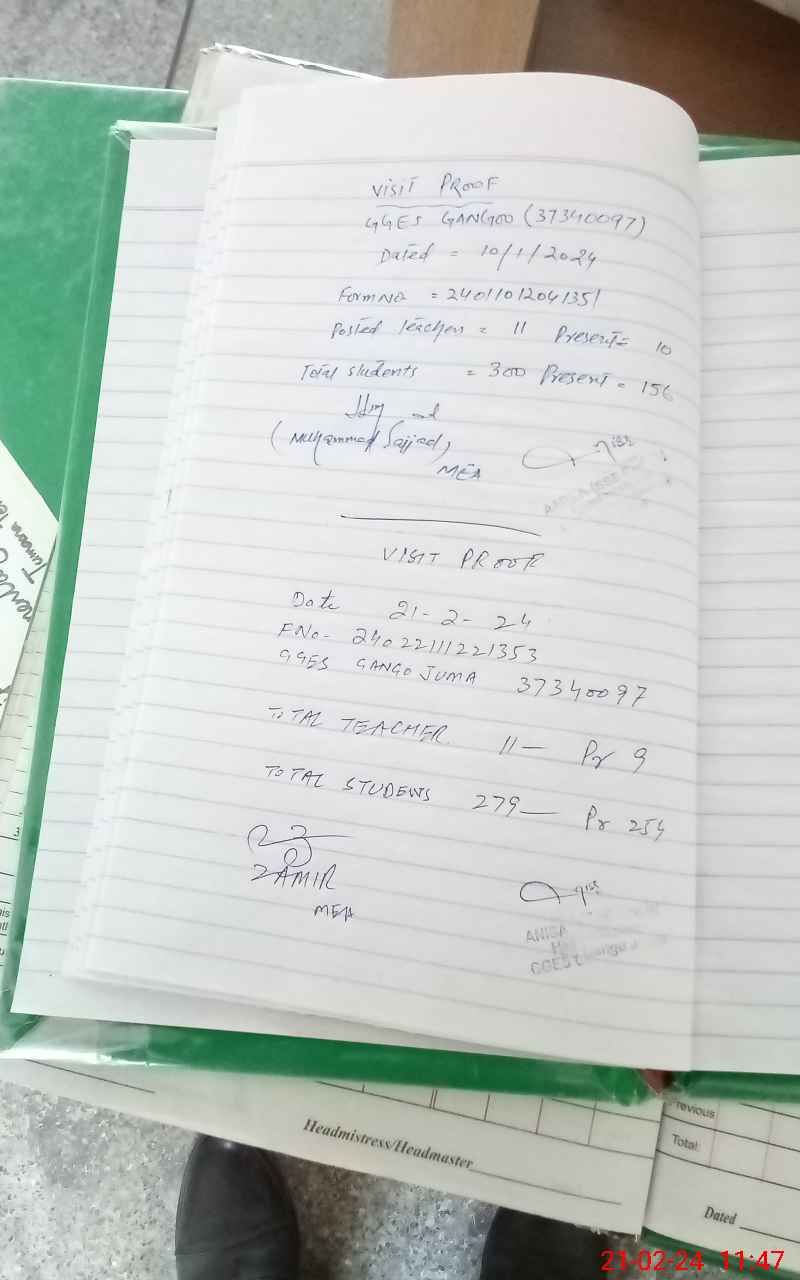 VISIT PROOF
GGES GANGOO (37340097)
Dated = 10/1/2024
Form No = 24011012041351
Posted teachers = 11 Present = 10
Total students = 300 Present = 156
(Muhammad Sajjad)
MEA
VISIT PROOF
Date 21-2-24
F.No- 24022111221353
GGES GANGO JUMA 37340097
TOTAL TEACHER 11— Pr 9
TOTAL STUDENTS 279— Pr 254
ZAMIR
MEA
ANISA
GGES
Headmistress/Headmaster
Previous
Total
Dated
21-02-24 11:47